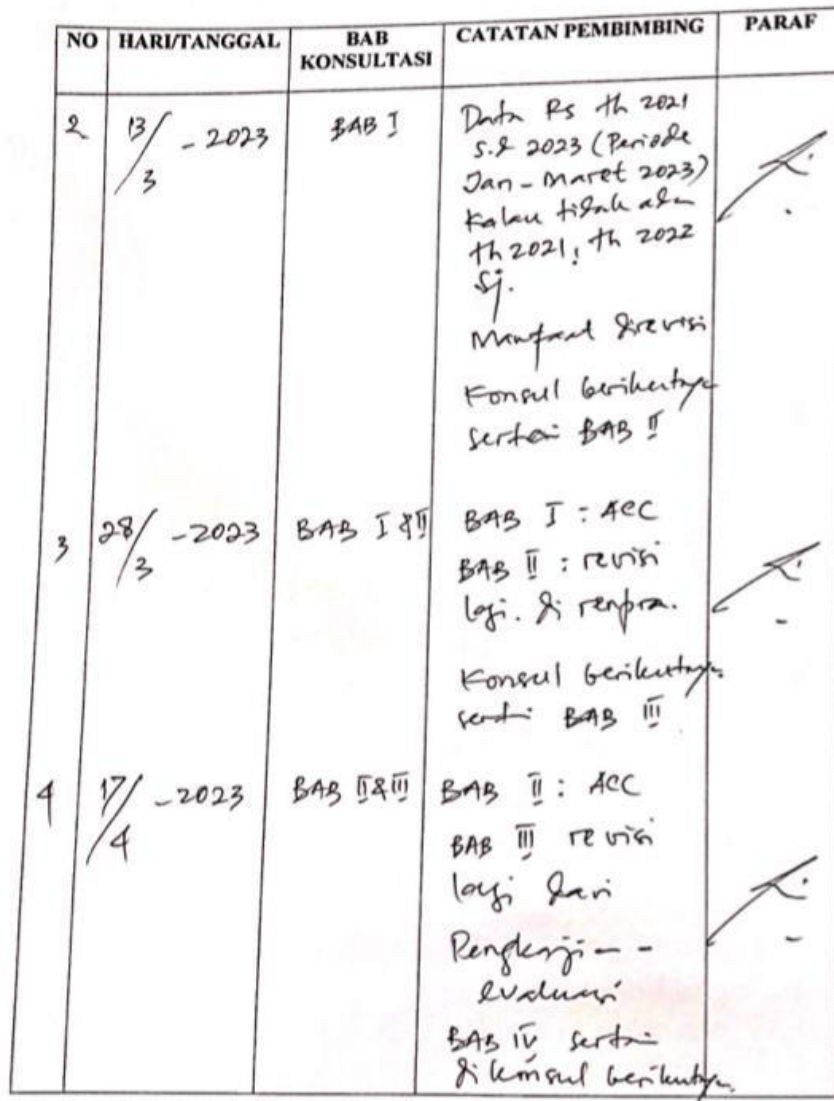 NO HARI/TANGGAL BAB KONSULTASI CATATAN PEMBIMBING PARAF
2 13/3 - 2023 BAB I Data RS th 2021
s.d 2023 (Periode
Jan - Maret 2023)
Kalau tidak ada
th 2021, th 2022
sj.
Manfaat direvisi
Konsul berikutnya
sertai BAB II
3 28/3 - 2023 BAB I & II BAB I : ACC
BAB II : revisi
lagi. di renpra.
Konsul berikutnya
sertai BAB III
4 17/4 - 2023 BAB II & III BAB II : ACC
BAB III revisi
lagi dari
Pengkajian -
evaluasi
BAB IV sertai
di konsul berikutnya